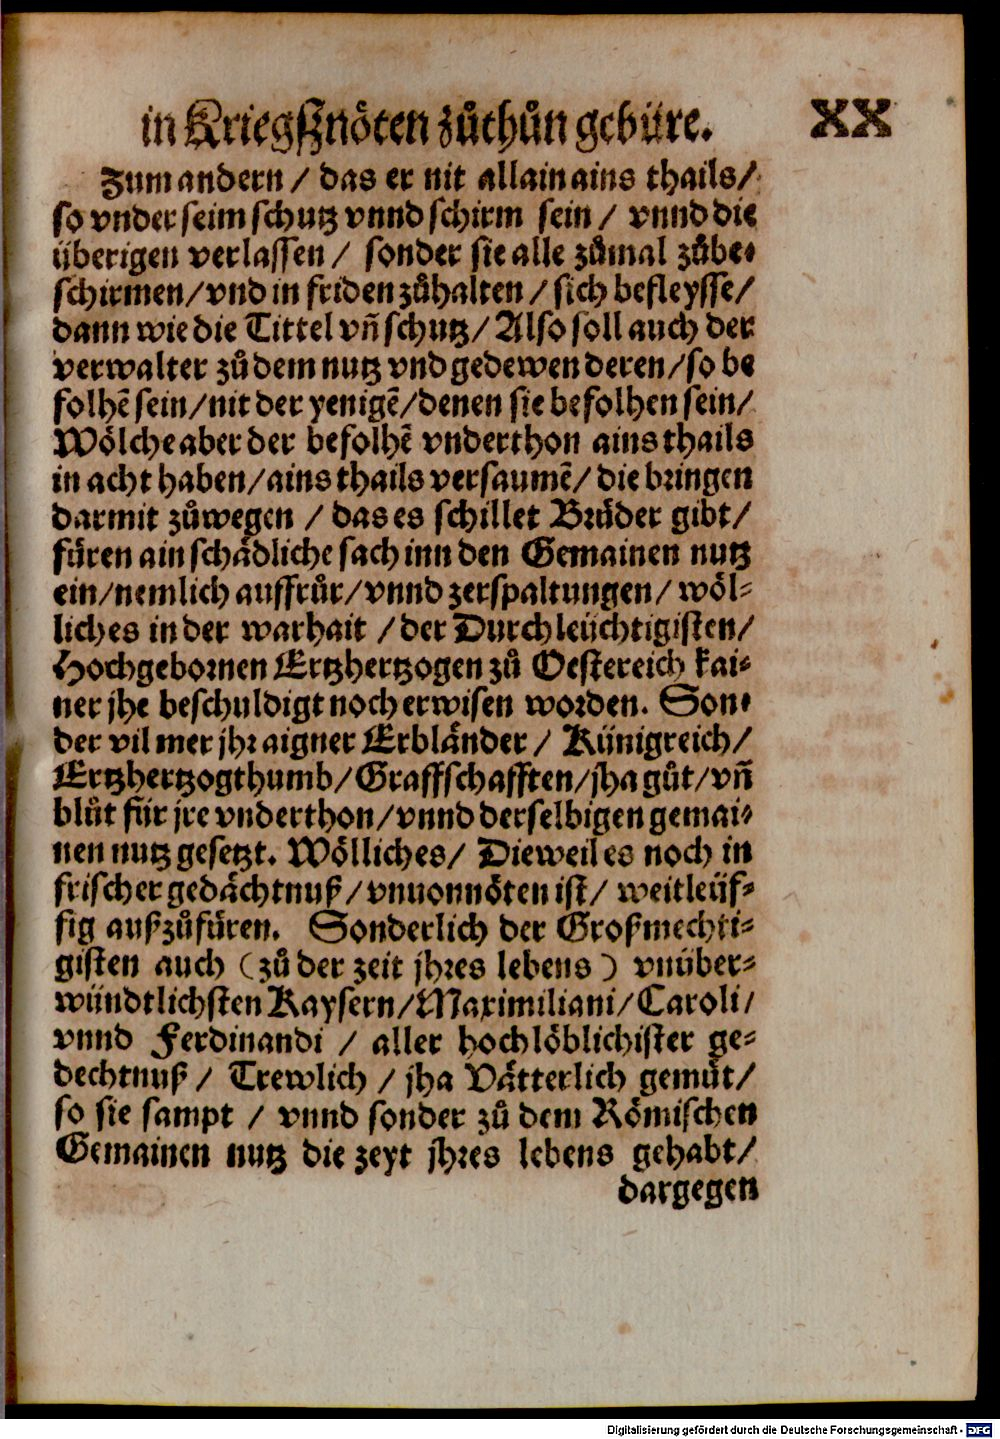 in Kriegſznöten zůthůn gebüre. XX
Zum andern / das er nit allain ains thails /
so vnder seim schutz vnnd schirm sein / vnnd die
überigen verlassen / sonder sie alle zůmal zůbe-
schirmen / vnd in friden zůhalten / sich befleysse /
dann wie die Tittel vñ schutz / Also soll auch der
verwalter zů dem nutz vnd gedewen deren / so be
folhẽ sein / nit der yenigẽ / denen sie befolhen sein /
Wölche aber der befolhẽ vnderthon ains thails
in acht haben / ains thails versaumẽ / die bringen
darmit zůwegen / das es schillet Brůder gibt /
fůren ain schädliche sach inn den Gemainen nutz
ein / nemlich auffrůr / vnnd zerspaltungen / wöl-
liches in der warhait / der Durchleüchtigisten /
Hochgebornen Ertzhertzogen zů Oestereich kai-
ner jhe beschuldigt noch erwisen worden. Son-
der vil mer jhr aigner Erbländer / Künigreich /
Ertzhertzogthumb / Graffschafften / jha gůt / vñ
blůt für jre vnderthon / vnnd derselbigen gemai-
nen nutz gesetzt. Wölliches / Dieweil es noch in
frischer gedächtnuß / vnuonnöten ist / weitleüf-
fig außzůfůren. Sonderlich der Großmechti-
gisten auch (zů der zeit jhres lebens) vnüber-
wündtlichsten Kaysern / Maximiliani / Caroli /
vnnd Ferdinandi / aller hochlöblichister ge-
dechtnuß / Trewlich / jha Vätterlich gemůt /
so sie sampt / vnnd sonder zů dem Römischen
Gemainen nutz die zeyt jhres lebens gehabt /
dargegen
Digitalisierung gefördert durch die Deutsche Forschungsgemeinschaft - DFG